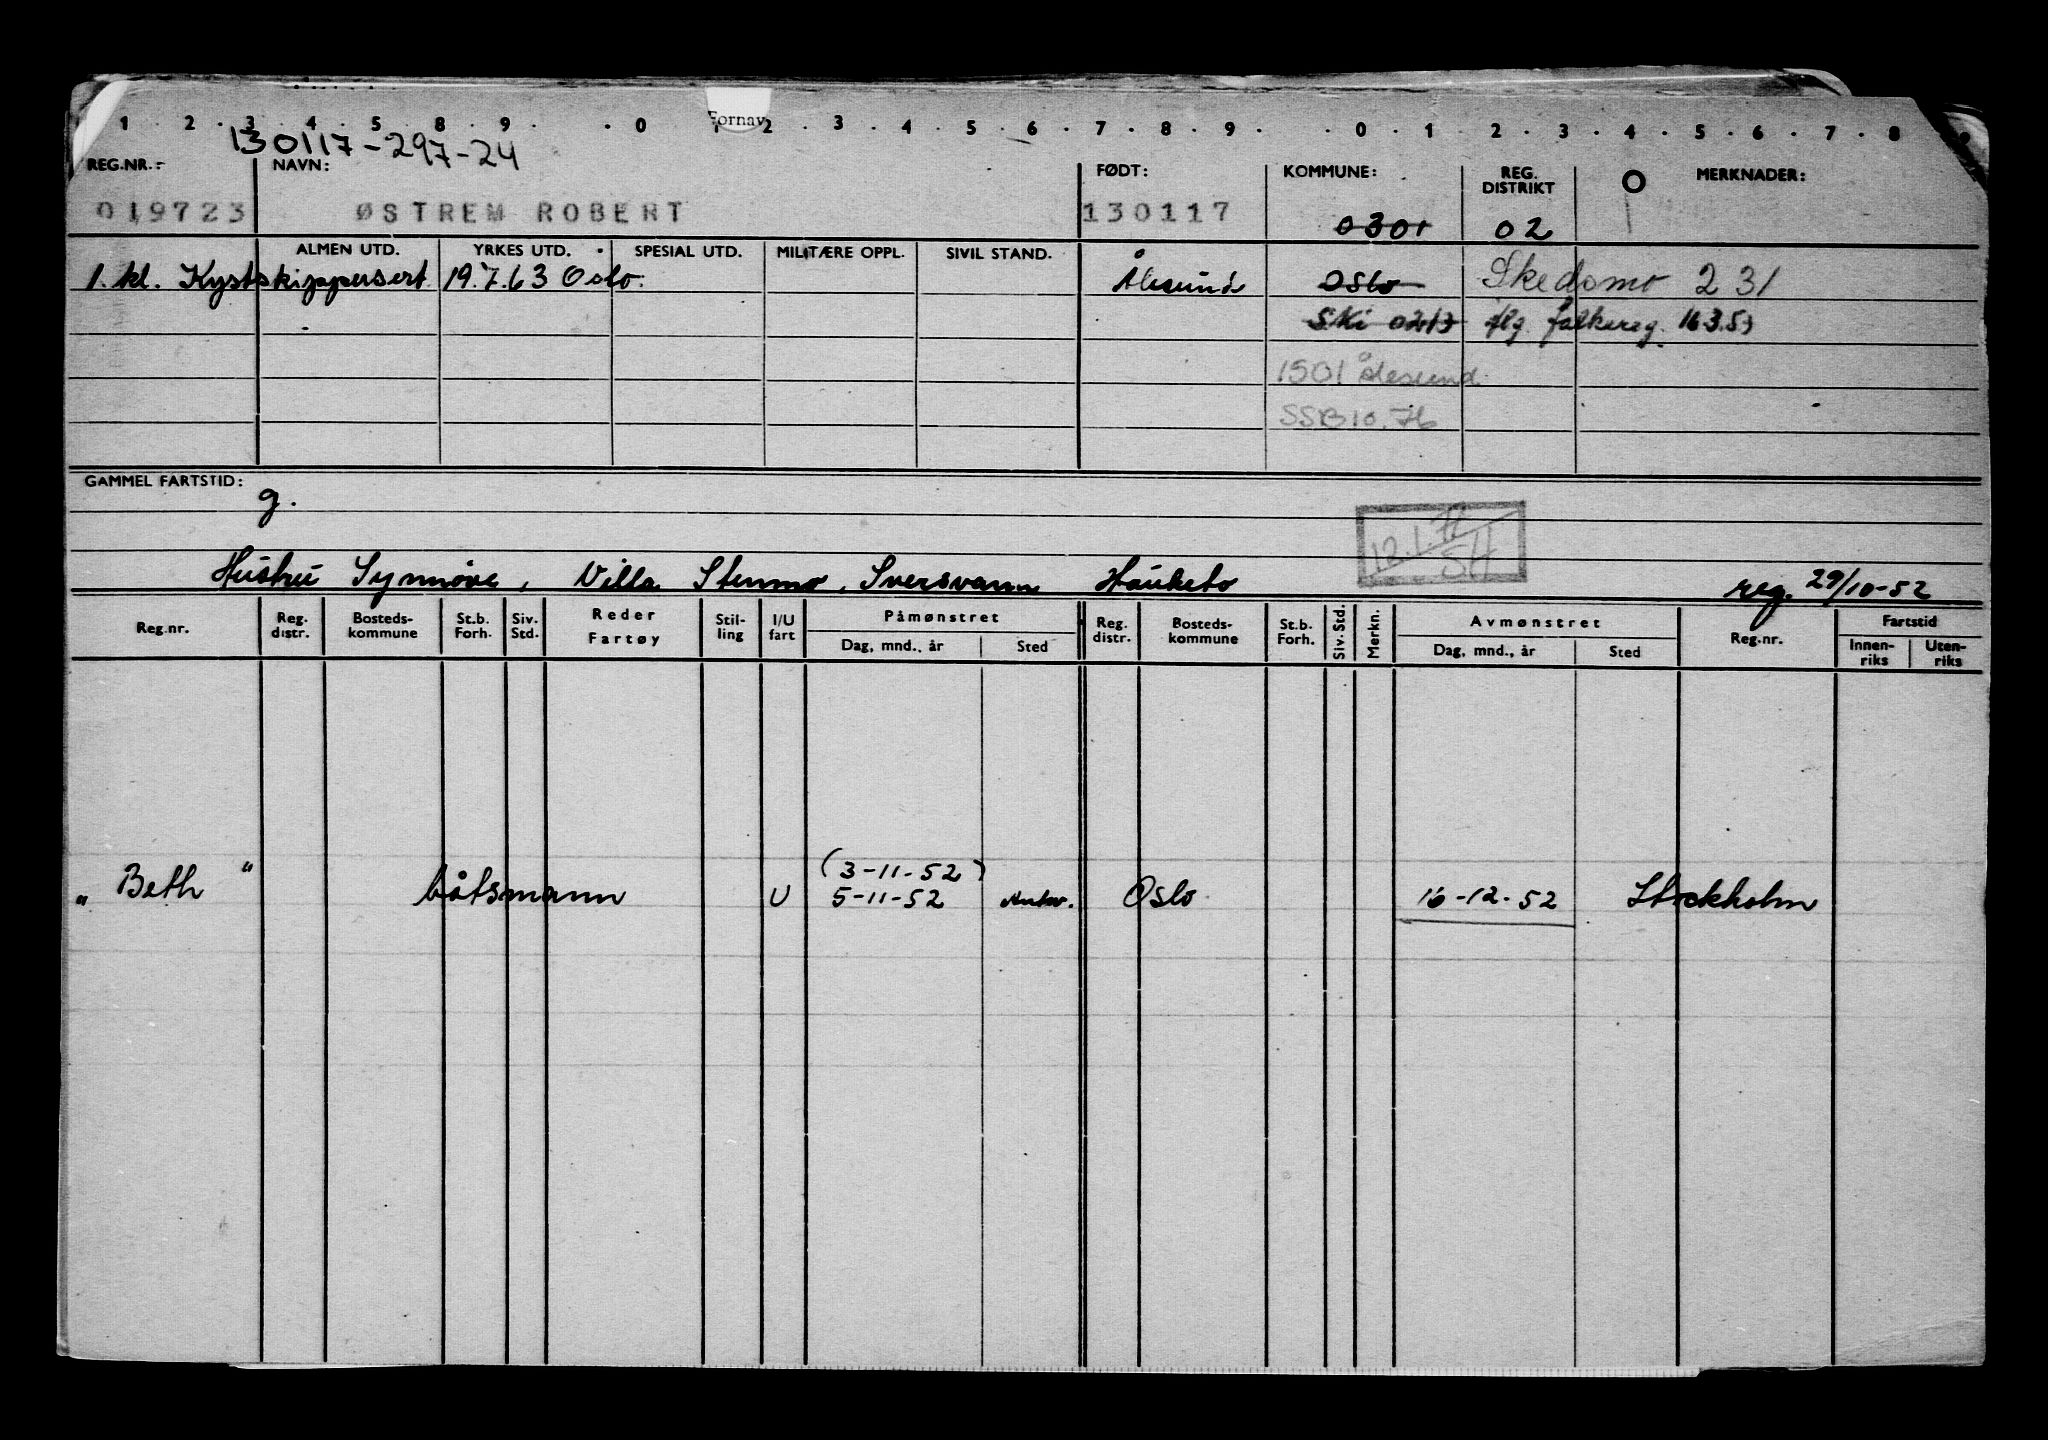 Fornav
1 . 2 . 3 . 4 . 5 . 8 . 9 . . 0 . 1 . 2 . 3 . 4 . 5 . 6 . 7 . 8 . 9 . . 0 . 1 . 2 . 3 . 4 . 5 . 6 . 7 . 8 . 9
130117-297-24
REG.NR.:- NAVN: FØDT: KOMMUNE: REG. DISTRIKT O MERKNADER:
019723 ØSTREM ROBERT 130117 0301 02
ALMEN UTD. YRKES UTD. SPESIAL UTD. MILITÆRE OPPL. SIVIL STAND.
1. kl. Kystskippersert. 19.7.63 Oslo. Ålesund Oslo Skedsmo 231
Ski 0213 flg. folkereg. 16.3.59
1501 Ålesund.
SSB 10.76
GAMMEL FARTSTID:
g.
12.1.77
SH
Hustru Synnøve, Villa Stenmo, Sversvann Hauketo reg. 29/10-52
Reg.nr. Reg. distr. Bosteds- kommune St.b. Forh. Siv. Std. Reder Fartøy Stil- ling I/U fart Påmønstret Reg. distr. Bosteds- kommune St.b. Forh. Siv. Std. Merkn. Avmønstret Reg.nr. Fartstid
Dag, mnd., år Sted Dag, mnd., år Sted Innen- riks Uten- riks
(3-11-52)
"Beth" båtsmann U 5-11-52 Antw. Oslo 16-12-52 Stockholm